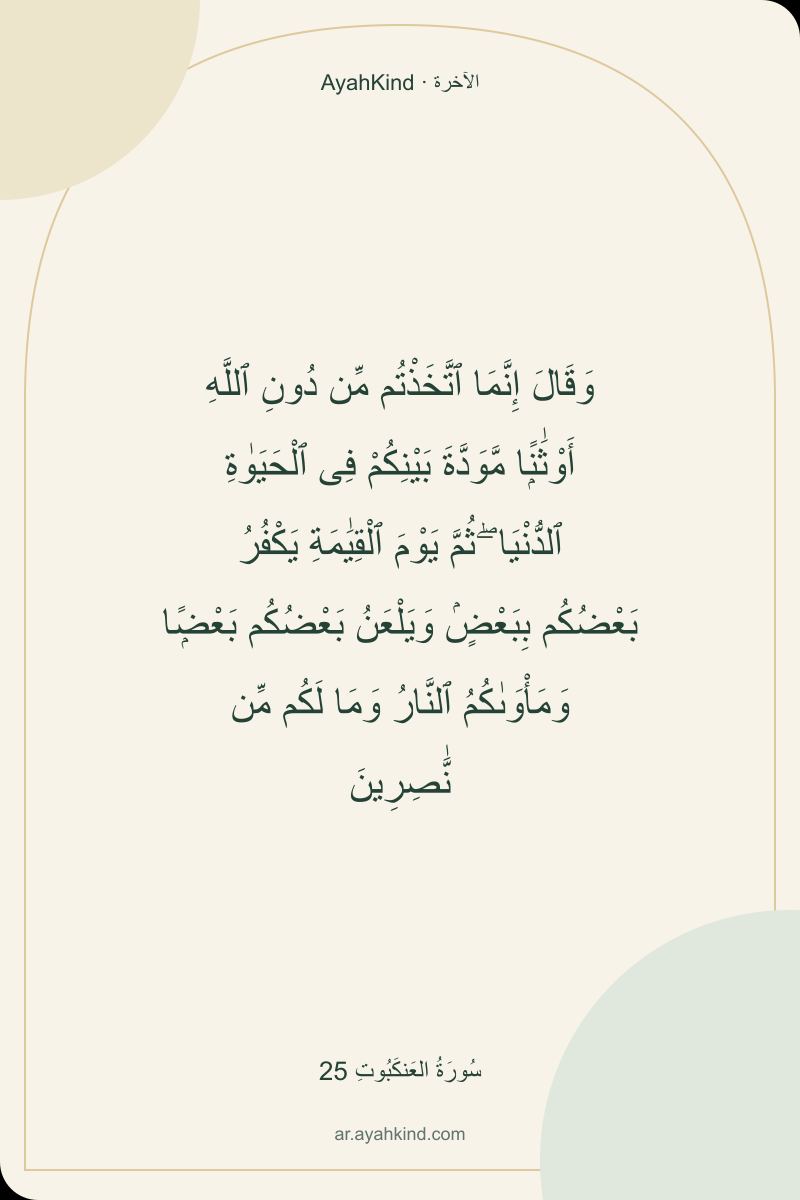 AyahKind · الآخرة
وَقَالَ إِنَّمَا ٱتَّخَذْتُم مِّن دُونِ ٱللَّهِ
أَوْثَـٰنًۭا مَّوَدَّةَ بَيْنِكُمْ فِى ٱلْحَيَوٰةِ
ٱلدُّنْيَا ۖ ثُمَّ يَوْمَ ٱلْقِيَـٰمَةِ يَكْفُرُ
بَعْضُكُم بِبَعْضٍۢ وَيَلْعَنُ بَعْضُكُم بَعْضًۭا
وَمَأْوَىٰكُمُ ٱلنَّارُ وَمَا لَكُم مِّن
نَّـٰصِرِينَ
سُورَةُ العَنكَبُوتِ 25
ar.ayahkind.com